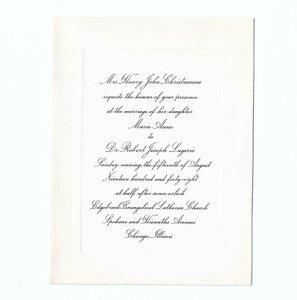 Mrs. Henry John Christiansen
requests the honour of your presence
at the marriage of her daughter
Marie Anne
to
Dr. Robert Joseph Lagorio
Sunday evening, the fifteenth of August
Nineteen hundred and forty-eight
at half after seven o'clock
Edgebrook Evangelical Lutheran Church
Spokane and Hiawatha Avenues
Chicago, Illinois